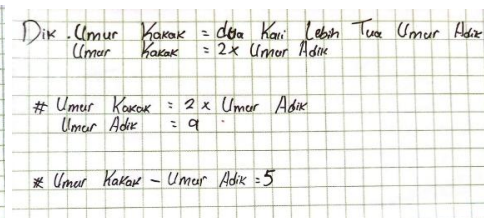 Dik . Umur Kakak = dua Kali Lebih Tua Umur Adik
Umur Kakak = 2 x Umur Adik
# Umur Kakak = 2 x Umur Adik
Umur Adik = a
* Umur Kakak - Umur Adik = 5